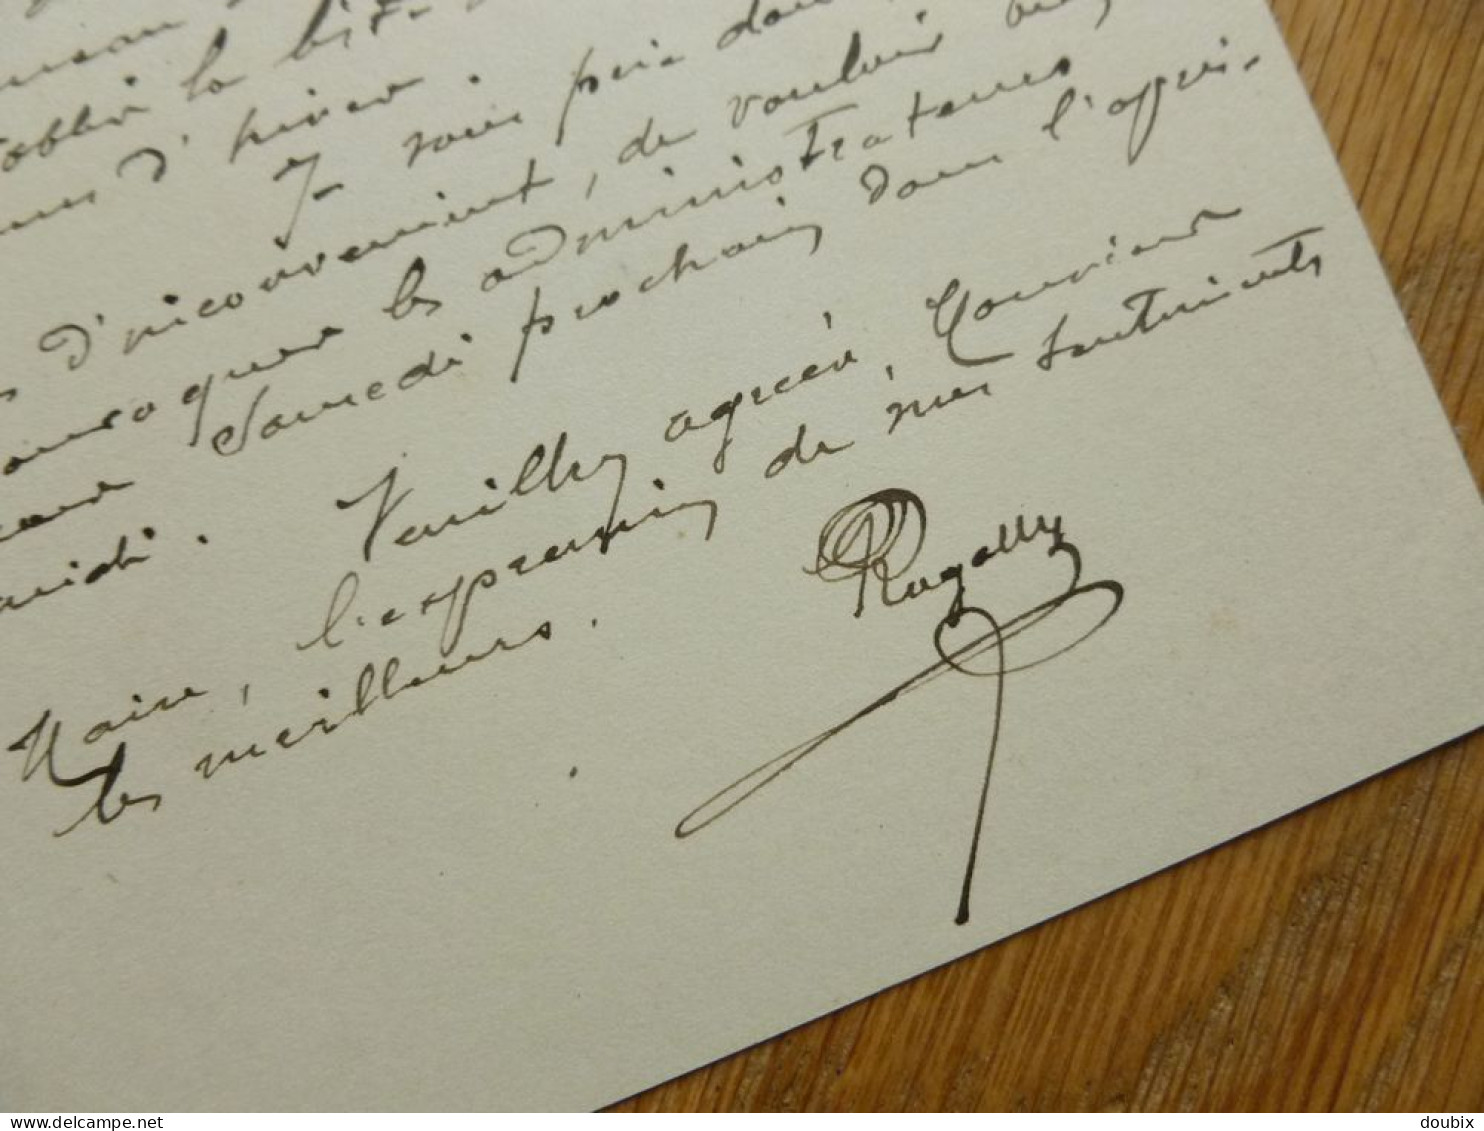 établir la liste
d'hiver. Je vous prie donc,
d'inconvénient, de vouloir
convoquer les administrateurs
pour Samedi prochain dans l'après-
midi. Veuillez agréer, Monsieur
le Maire, l'expression de mes sentiments
les meilleurs.
Rugally
doubix